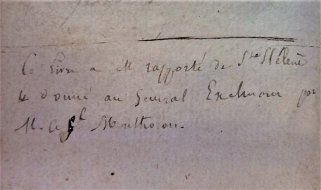 Ce livre a été rapporté de Ste Hélène
& donné au General Excelmans par
M. le Gl Montholon.